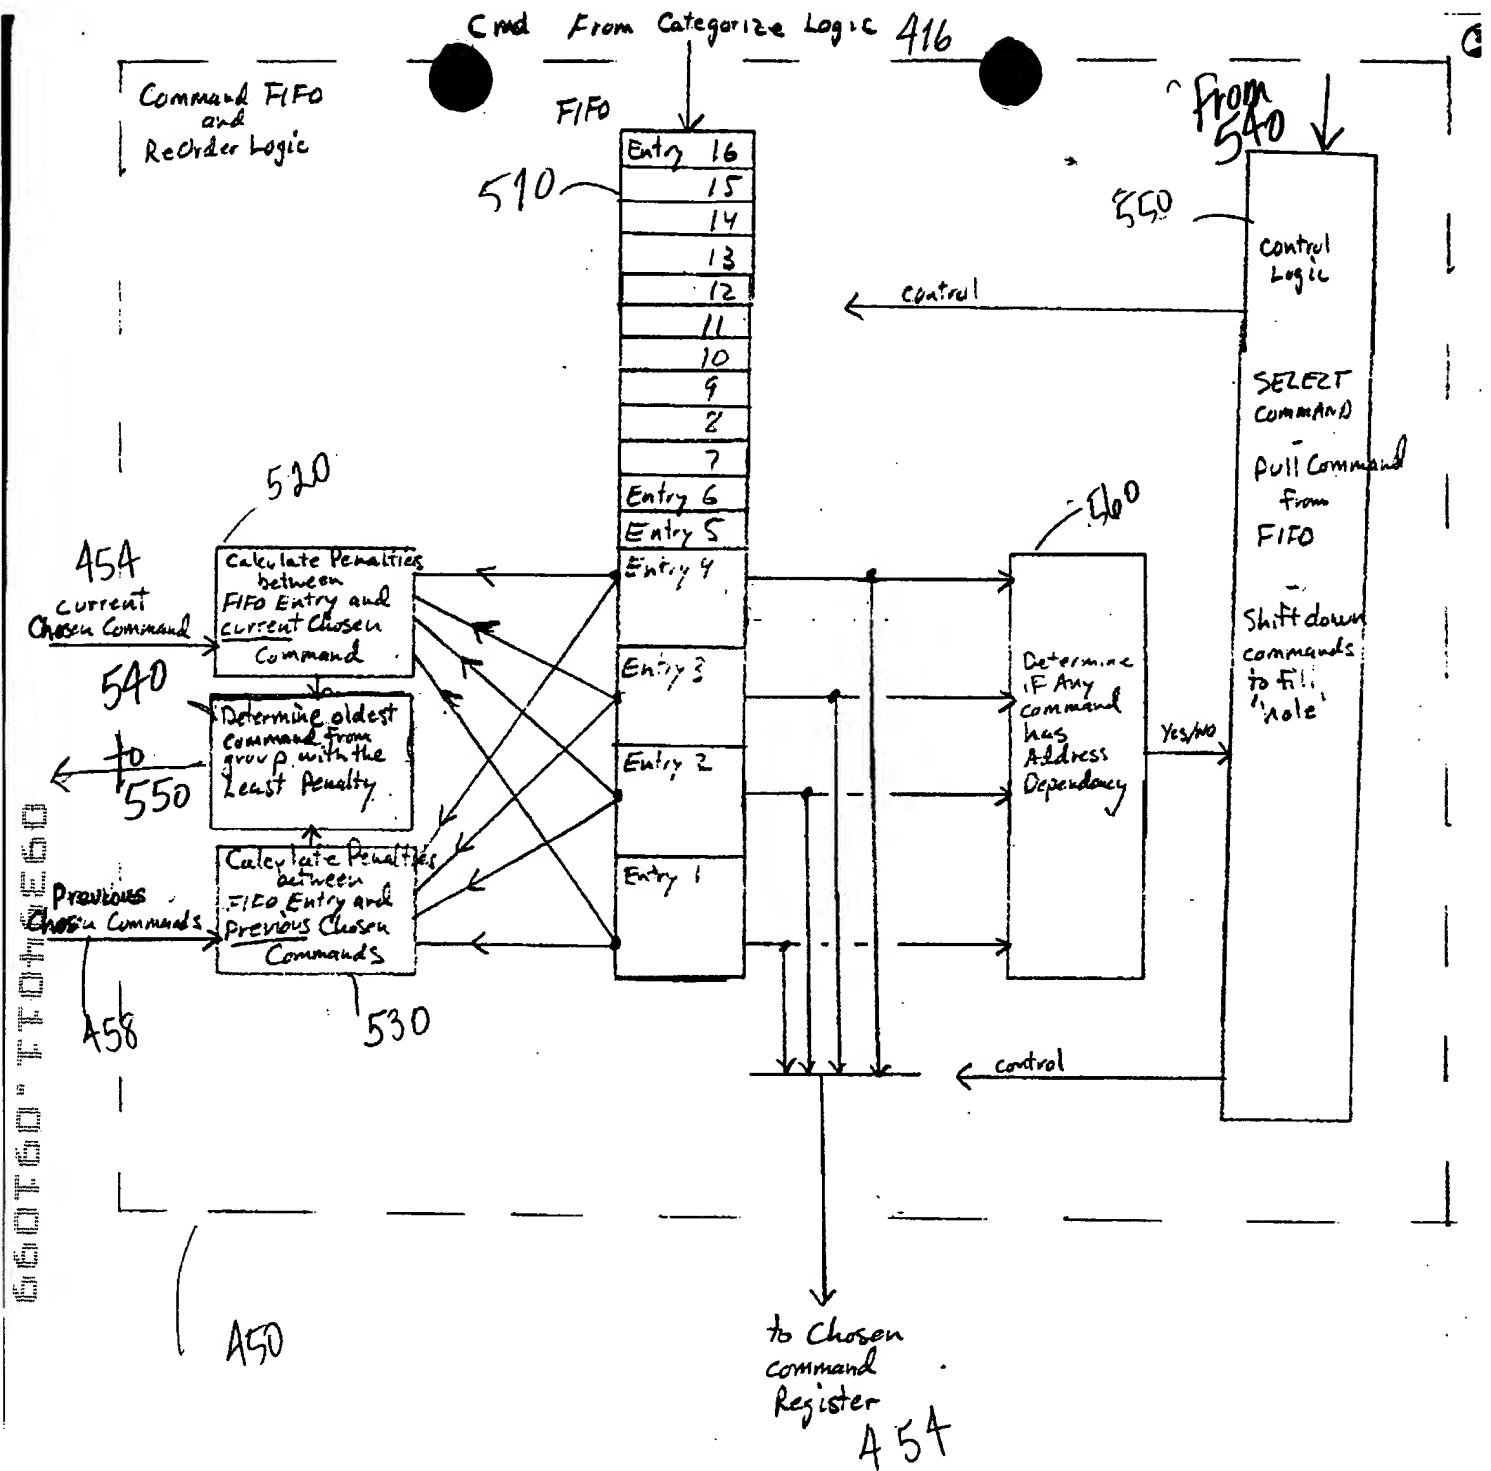 Cmd From Categorize Logic 416
Command FIFO
and
ReOrder Logic
FIFO
From
540
Entry 16
15
14
13
12
11
10
9
8
7
Entry 6
Entry 5
Entry 4
Entry 3
Entry 2
Entry 1
510
550
Control
Logic
SELECT
COMMAND
-
Pull Command
from
FIFO
-
Shift down
commands
to fill
"hole"
control
520
560
454
Current
Chosen Command
Calculate Penalties
between
FIFO Entry and
current Chosen
Command
540
Determine oldest
command from
group with the
Least Penalty
to
550
Calculate Penalties
between
FIFO Entry and
Previous Chosen
Commands
Previous
Chosen Commands
458
530
Determine
IF Any
command
has
Address
Dependency
Yes/No
control
450
to Chosen
command
Register
454